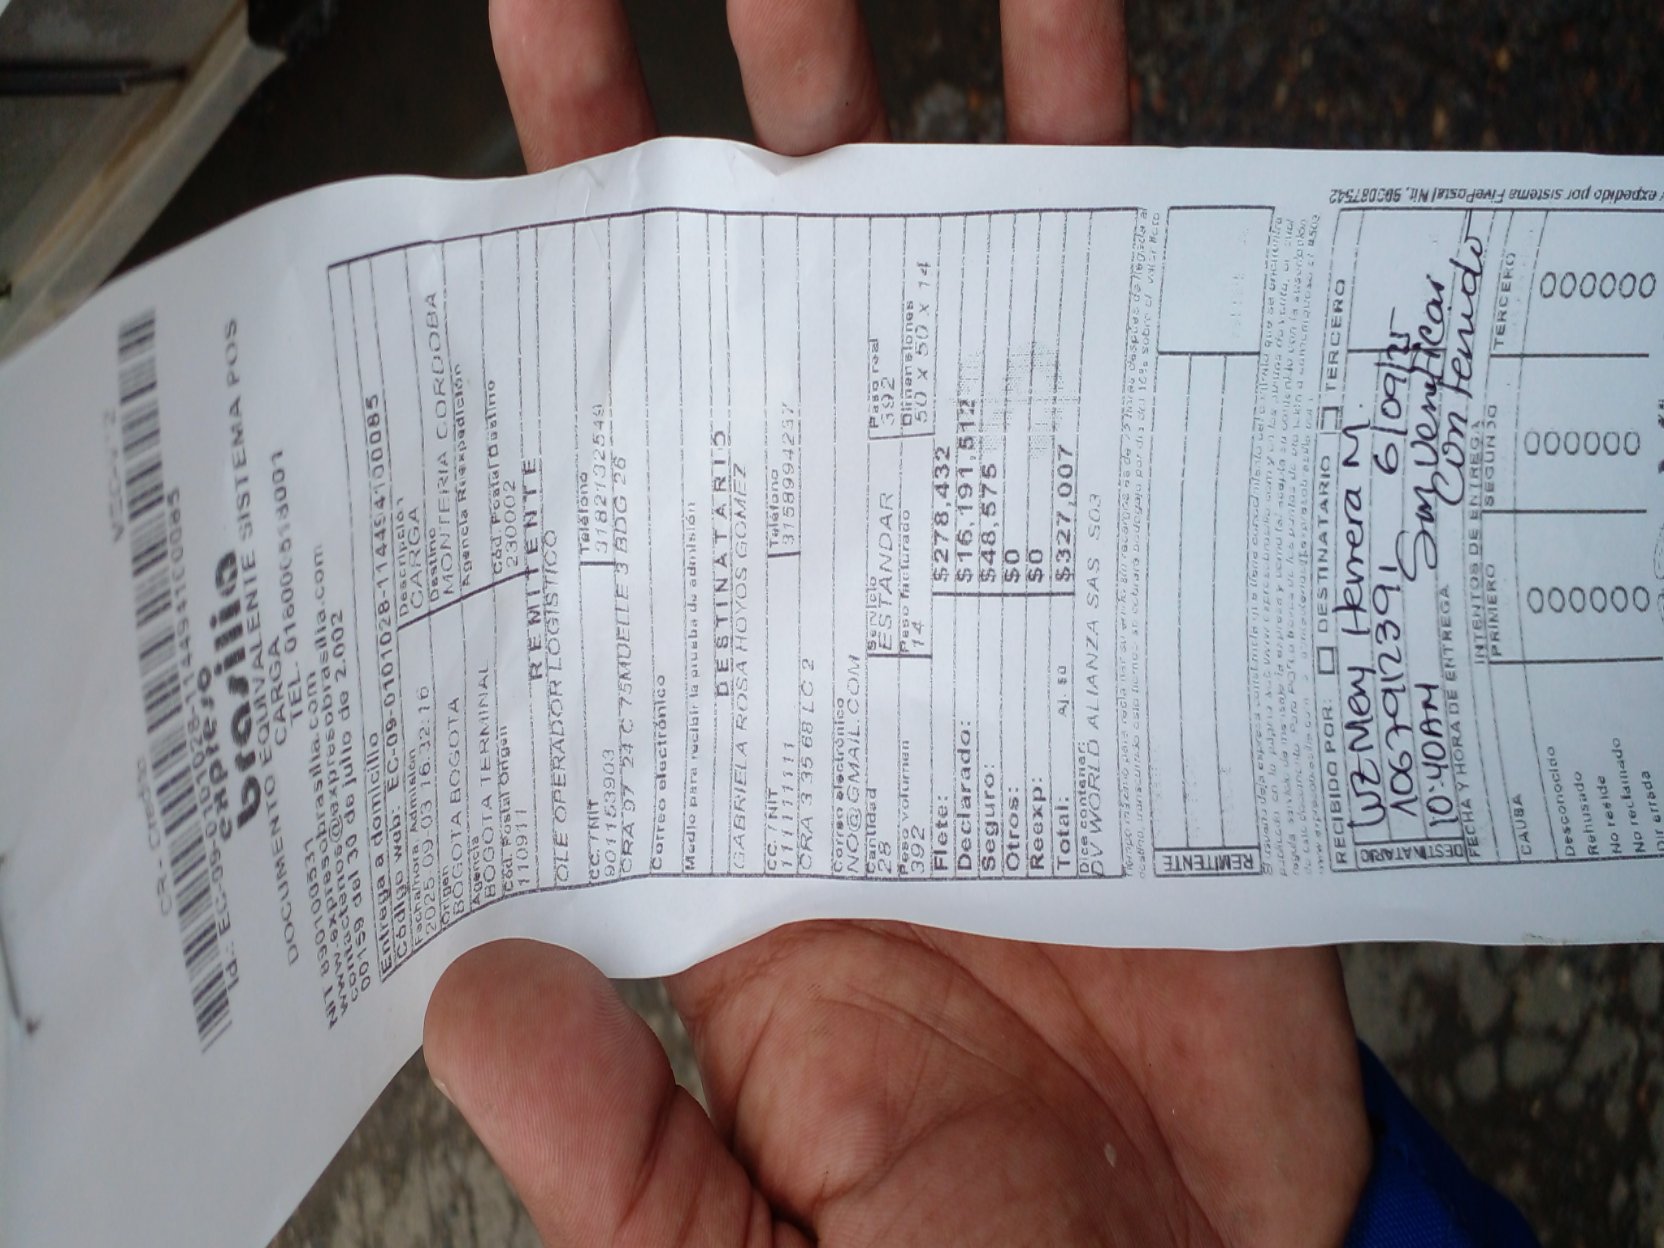 CR - Credito
Id.: EC-09-0101028-1144941C0085
expreso
brasilia
DOCUMENTO EQUIVALENTE SISTEMA POS
CARGA
TEL. 018000518001
NIT 890100531
www.expresobrasilia.com
contactenos@expresobrasilia.com
00159 del 30 de julio de 2.002
Entrega a domicilio
Código web: EC-09-0101028-114494100085
Fecha/hora Admisión
2025-09-03 16:32:16
Descripción
CARGA
Origen
BOGOTA BOGOTA
Destino
MONTERIA CORDOBA
Agencia
BOGOTA TERMINAL
Agencia Riexpedición
Cód. Postal Origen
110911
Cód. Postal Destino
230002
REMITENTE
OLE OPERADOR LOGISTICO
CC./NIT
901153903
Teléfono
3182132549
CRA 97 24 C 75MUELLE 3 BDG 26
Correo electrónico
Medio para recibir la prueba de admisión
DESTINATARIO
GABRIELA ROSA HOYOS GOMEZ
CC./NIT
1111111111
Teléfono
3158994237
CRA 3 35 68 LC 2
Correo electrónico
NO@GMAIL.COM
Cantidad
28
Servicio
ESTANDAR
Peso real
392
Peso volumen
392
Peso facturado
14
Dimensiones
50 x 50 x 14
Flete: $278,432
Declarado: $16,191,512
Seguro: $48,575
Otros: $0
Reexp: $0
Total: Aj. $0 $327,007
Dice contener:
DV WORLD ALIANZA SAS S03
REMITENTE
RECIBIDO POR: DESTINATARIO TERCERO
DESTINATARIO
Luz Mery Herrera M.
1067912391 6/09/25
10:40AM Sin Verificar
Contenido
FECHA Y HORA DE ENTREGA
INTENTOS DE ENTREGA
CAUSA PRIMERO SEGUNDO TERCERO
Desconocido
Rehusado
No reside
No reclamado
Dir errada
expedido por sistema FivePostal Nit. 900087542